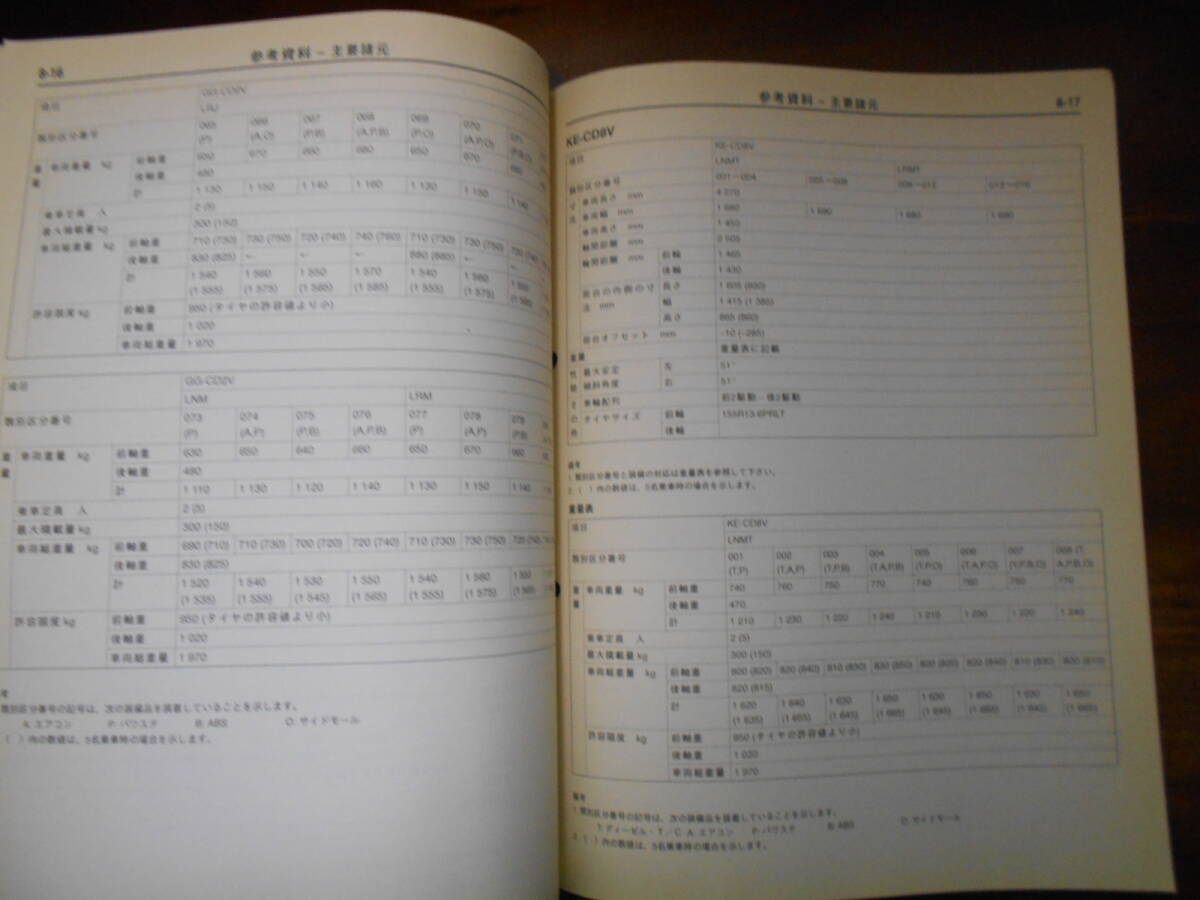 8-16
参考資料－主要諸元
項目
GG-CD2V
LRM
類別区分番号
065 066 067 068 069 070 071
(P) (A,O) (P,B) (A,P,B) (P,O) (A,P,O) (P,B,O)
重量 車両重量 kg 前軸重 650 670 660 680 650 670 660
後軸重 480
計 1 130 1 150 1 140 1 160 1 130 1 150 1 140
乗車定員 人 2 (5)
最大積載量 kg 300 (150)
車両総重量 kg 前軸重 710 (730) 730 (750) 720 (740) 740 (760) 710 (730) 730 (750) 720 (740)
後軸重 830 (825) ← ← ← 880 (885) ← ←
計 1 540 1 560 1 550 1 570 1 540 1 560 1 550
(1 555) (1 575) (1 565) (1 585) (1 555) (1 575) (1 565)
許容限度 kg 前軸重 950 (タイヤの許容値より小)
後軸重 1 020
車両総重量 1 970
項目
GG-CD2V
LNM LRM
類別区分番号
073 074 075 076 077 078 079
(P) (A,P) (P,B) (A,P,B) (P) (A,P) (P,B)
重量 車両重量 kg 前軸重 630 650 640 660 650 670 660
後軸重 480
計 1 110 1 130 1 120 1 140 1 130 1 150 1 140
乗車定員 人 2 (5)
最大積載量 kg 300 (150)
車両総重量 kg 前軸重 690 (710) 710 (730) 700 (720) 720 (740) 710 (730) 730 (750) 720 (740)
後軸重 830 (825)
計 1 520 1 540 1 530 1 550 1 540 1 560 1 550
(1 535) (1 555) (1 545) (1 565) (1 555) (1 575)
許容限度 kg 前軸重 950 (タイヤの許容値より小)
後軸重 1 020
車両総重量 1 970
考
類別区分番号の記号は、次の装備品を装着していることを示します。
A.エアコン P.パワステ B.ABS O.サイドモール
( )内の数値は、5名乗車時の場合を示します。
参考資料－主要諸元
8-17
KE-CD8V
項目
KE-CD8V
LNMT LRMT
類別区分番号 001～004 005～008 009～012 013～016
寸法 車両長さ mm 4 270
車両幅 mm 1 680 1 690 1 680 1 690
車両高さ mm 1 450
軸間距離 mm 2 505
輪間距離 mm 前輪 1 465
後輪 1 430
荷台の内側の寸法 mm 長さ 1 605 (930)
幅 1 415 (1 385)
高さ 865 (860)
荷台オフセット mm -10 (-285)
重量 重量表に記載
性能 最大安定傾斜角度 左 51°
右 51°
その他 車輪配列 前2駆動－後2駆動
タイヤサイズ 前輪 155R13-6PRLT
後輪
備考
1. 類別区分番号と装備の対応は重量表を参照して下さい。
2. ( )内の数値は、5名乗車時の場合を示します。
重量表
項目
KE-CD8V
LNMT
類別区分番号
001 002 003 004 005 006 007 008 (T,
(T,P) (T,A,P) (T,P,B) (T,A,P,B) (T,P,O) (T,A,P,O) (T,P,B,O) A,P,B,O)
重量 車両重量 kg 前軸重 740 760 750 770 740 760 750 770
後軸重 470
計 1 210 1 230 1 220 1 240 1 210 1 230 1 220 1 240
乗車定員 人 2 (5)
最大積載量 kg 300 (150)
車両総重量 kg 前軸重 800 (820) 820 (840) 810 (830) 830 (850) 800 (820) 820 (840) 810 (830)
後軸重 820 (815)
計 1 620 1 640 1 630 1 650 1 630 1 650 1 630 1 650
(1 635) (1 655) (1 645) (1 665) (1 645) (1 665) (1 645) (1 665)
許容限度 kg 前軸重 950 (タイヤの許容値より小)
後軸重 1 020
車両総重量 1 970
備考
1. 類別区分番号の記号は、次の装備品を装着していることを示します。
T.ディーゼル・T／C A.エアコン P.パワステ B.ABS O.サイドモール
2. ( )内の数値は、5名乗車時の場合を示します。